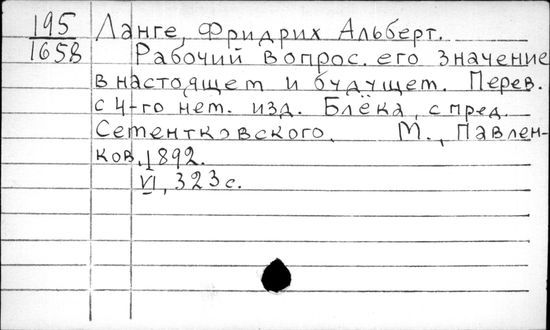 195
1658
Ланге, Фридрих Альберт.
Рабочий вопрос. его значение
в настоящем и будущем. Перев.
с 4-го нем. изд. Блёка, с пред.
Сементковского. М., Павлен-
ков, 1892.
VI, 323 с.